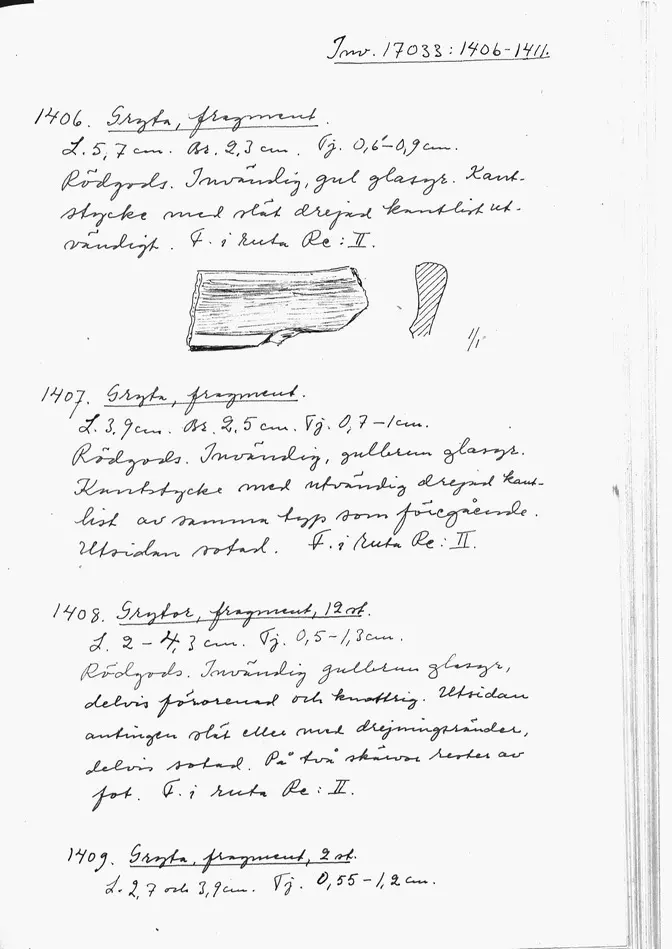 Inv. 17033:1406-1411.
1406. Gryta, fragment.
L. 5,7 cm. Br. 2,3 cm. Tj. 0,6-0,9 cm.
Rödgods. Invändig, gul glasyr. Kant-
stycke med slät drejad kantlist ut-
vändigt. F. i ruta Rc:II.
1/1
1407. Gryta, fragment.
L. 3,9 cm. Br. 2,5 cm. Tj. 0,7-1 cm.
Rödgods. Invändig, gulbrun glasyr.
Kantstycke med utvändig drejad kant-
list av samma typ som föregående.
Utsidan sotad. F. i ruta Rc:II.
1408. Grytor, fragment, 12 st.
L. 2-4,3 cm. Tj. 0,5-1,3 cm.
Rödgods. Invändig gulbrun glasyr,
delvis förorenad och knottrig. Utsidan
antingen slät eller med drejningsränder,
delvis sotad. På två skärvor rester av
fot. F. i ruta Rc:II.
1409. Gryta, fragment, 2 st.
L. 2,7 och 3,9 cm. Tj. 0,55-1,2 cm.